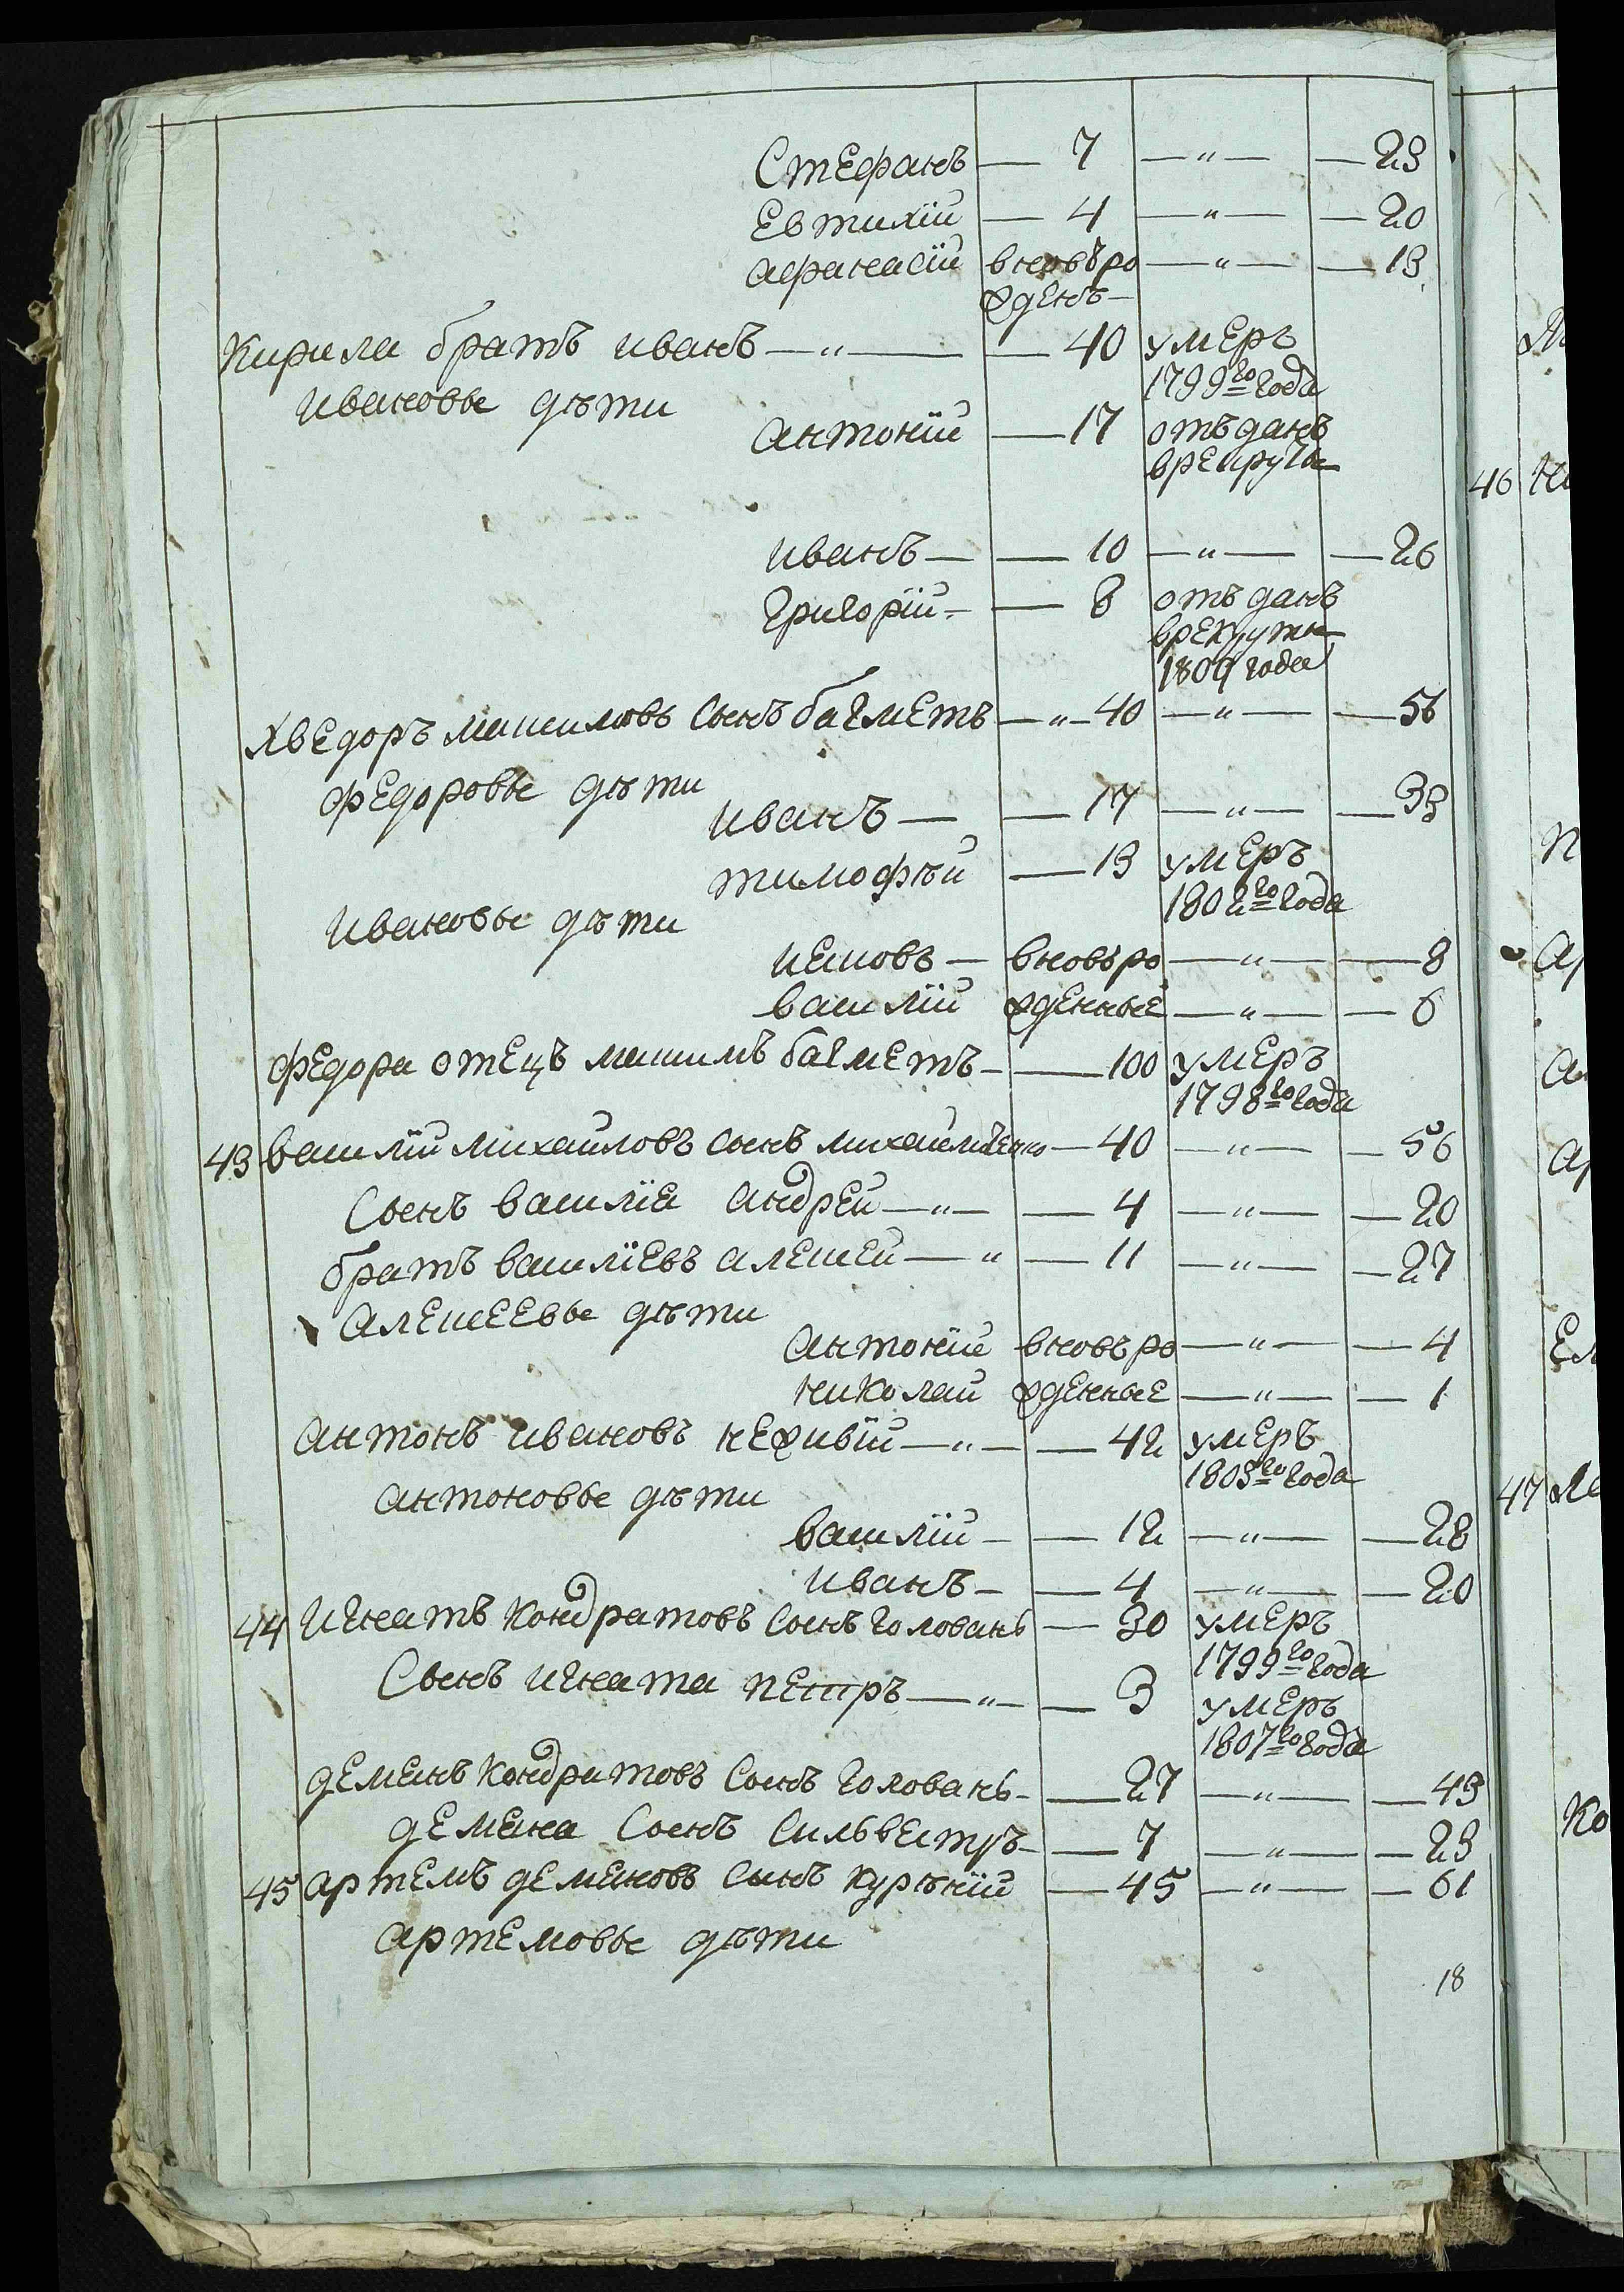 Стефанъ — 7 — " — — 23
Евтихій — 4 — " — — 20
Афанасій вновъ ро — " — — 13
жденъ —
Кирила братъ иванъ — " — — 40 умеръ
1799го года
Ивановы дѣти
Антоній — 17 отъданъ
врекруты
иванъ — — 10 — " — — 26
Григорій — — 8 отъ данъ
врекруты
1809 года
Хведоръ максимовъ сынъ багметъ — " — 40 — " — — 56
Федоровы дѣти
Иванъ — — 17 — " — — 33
тимофѣй — 13 умеръ
1802го года
Ивановы дѣти
иаковъ — вновъ ро — " — — 8
василій жденные — " — — 6
Федора отецъ максимъ багметъ — — 100 умеръ
1798го года
43 василій михаиловъ сынъ михаиличенко — 40 — " — — 56
Сынъ василіа андрей — " — — 4 — " — — 20
братъ василіевъ алексей — " — 11 — " — — 27
Алексеевы дѣти
Антоній вновъ ро — " — — 4
николай жденные — " — — 1
Антонъ ивановъ неживій — " — — 42 умеръ
1803го года
Антоновы дѣти
василій — — 12 — " — — 28
Иванъ — — 4 — " — — 20
44 Игнатъ Кондратовъ сынъ голованъ — 30 умеръ
1799го года
Сынъ игната петръ — " — — 3 умеръ
1807го года
Деменъ Кондратовъ сынъ голованъ — — 27 — " — — 43
Демена сынъ Сильвестръ — — 7 — " — — 23
45 Артемъ Деменовъ сынъ Курѣній — 45 — " — — 61
Артемовы дѣти
18
46
47